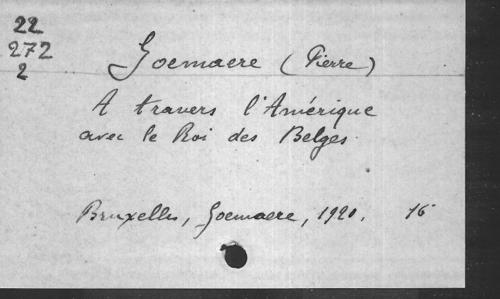 22
272
2
Goemaere (Pierre)
A travers l'Amérique
avec le Roi des Belges.
Bruxelles, Goemaere, 1920. 16°